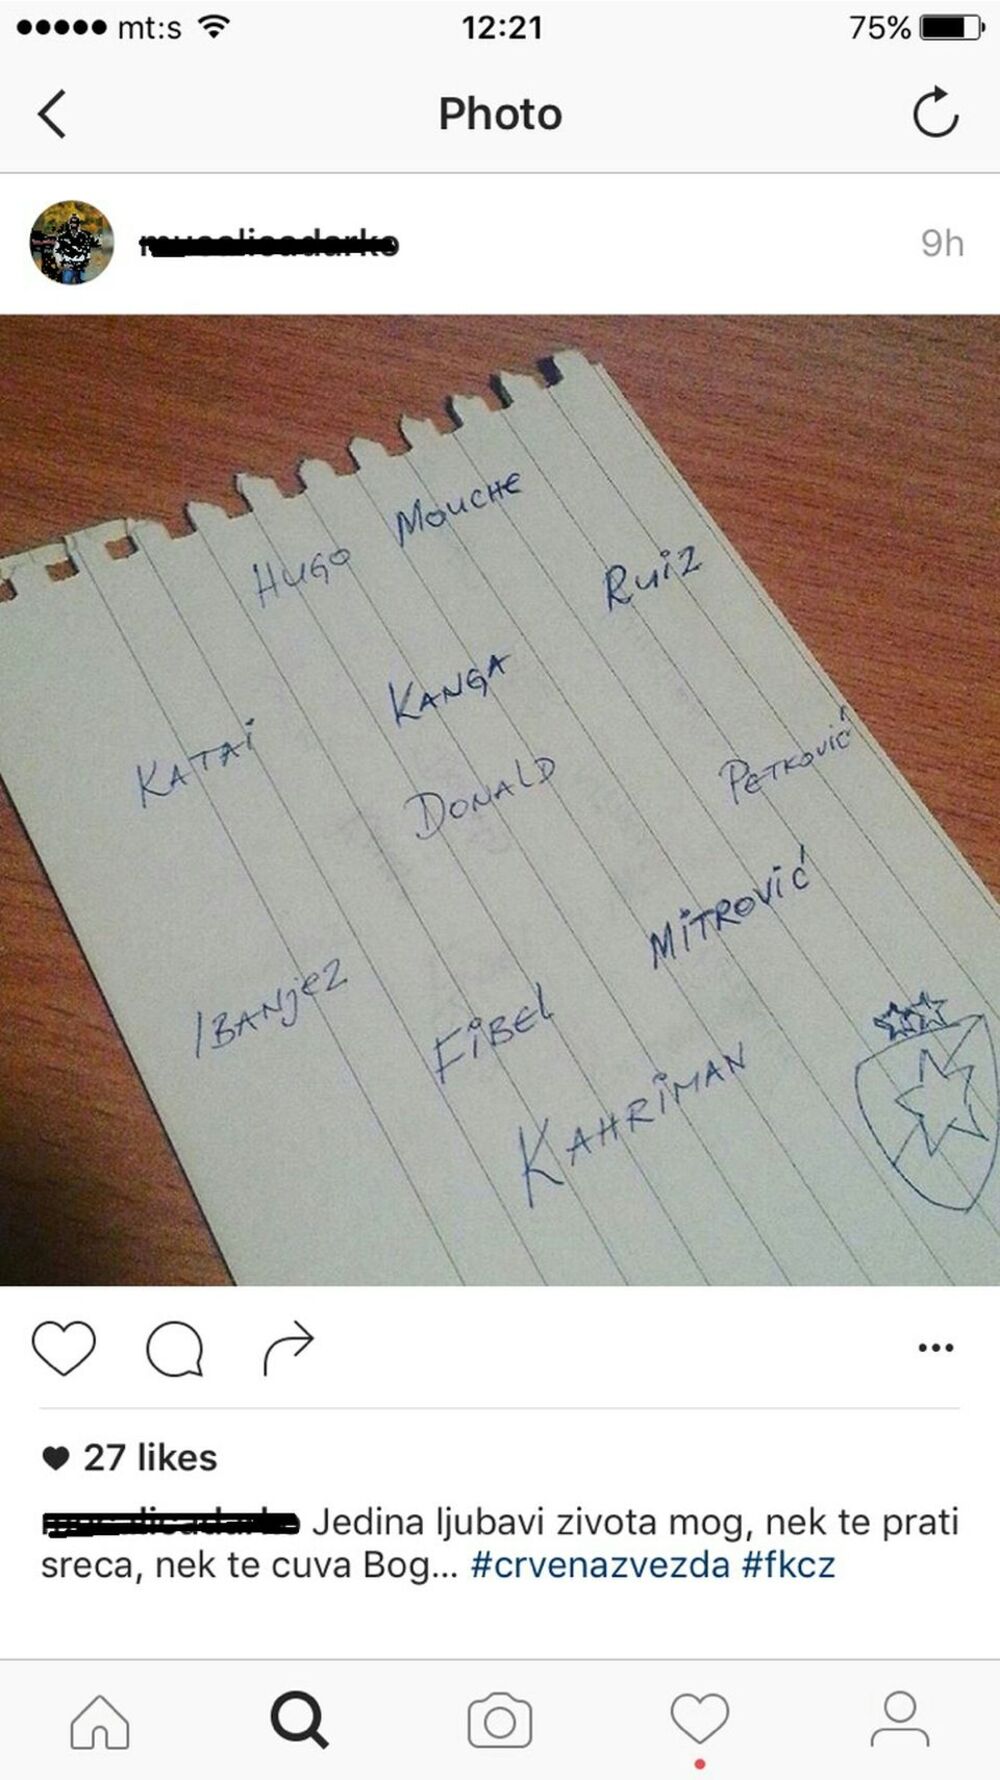 mt:s 12:21 75%
Photo
9h
MOUCHE
HUGO
Ruiz
KANGA
KATAI
PETKOVIĆ
DONALD
MITROVIĆ
IBANjEZ
FIBEL
KAHRIMAN
27 likes
Jedina ljubavi zivota mog, nek te prati
sreca, nek te cuva Bog... #crvenazvezda #fkcz